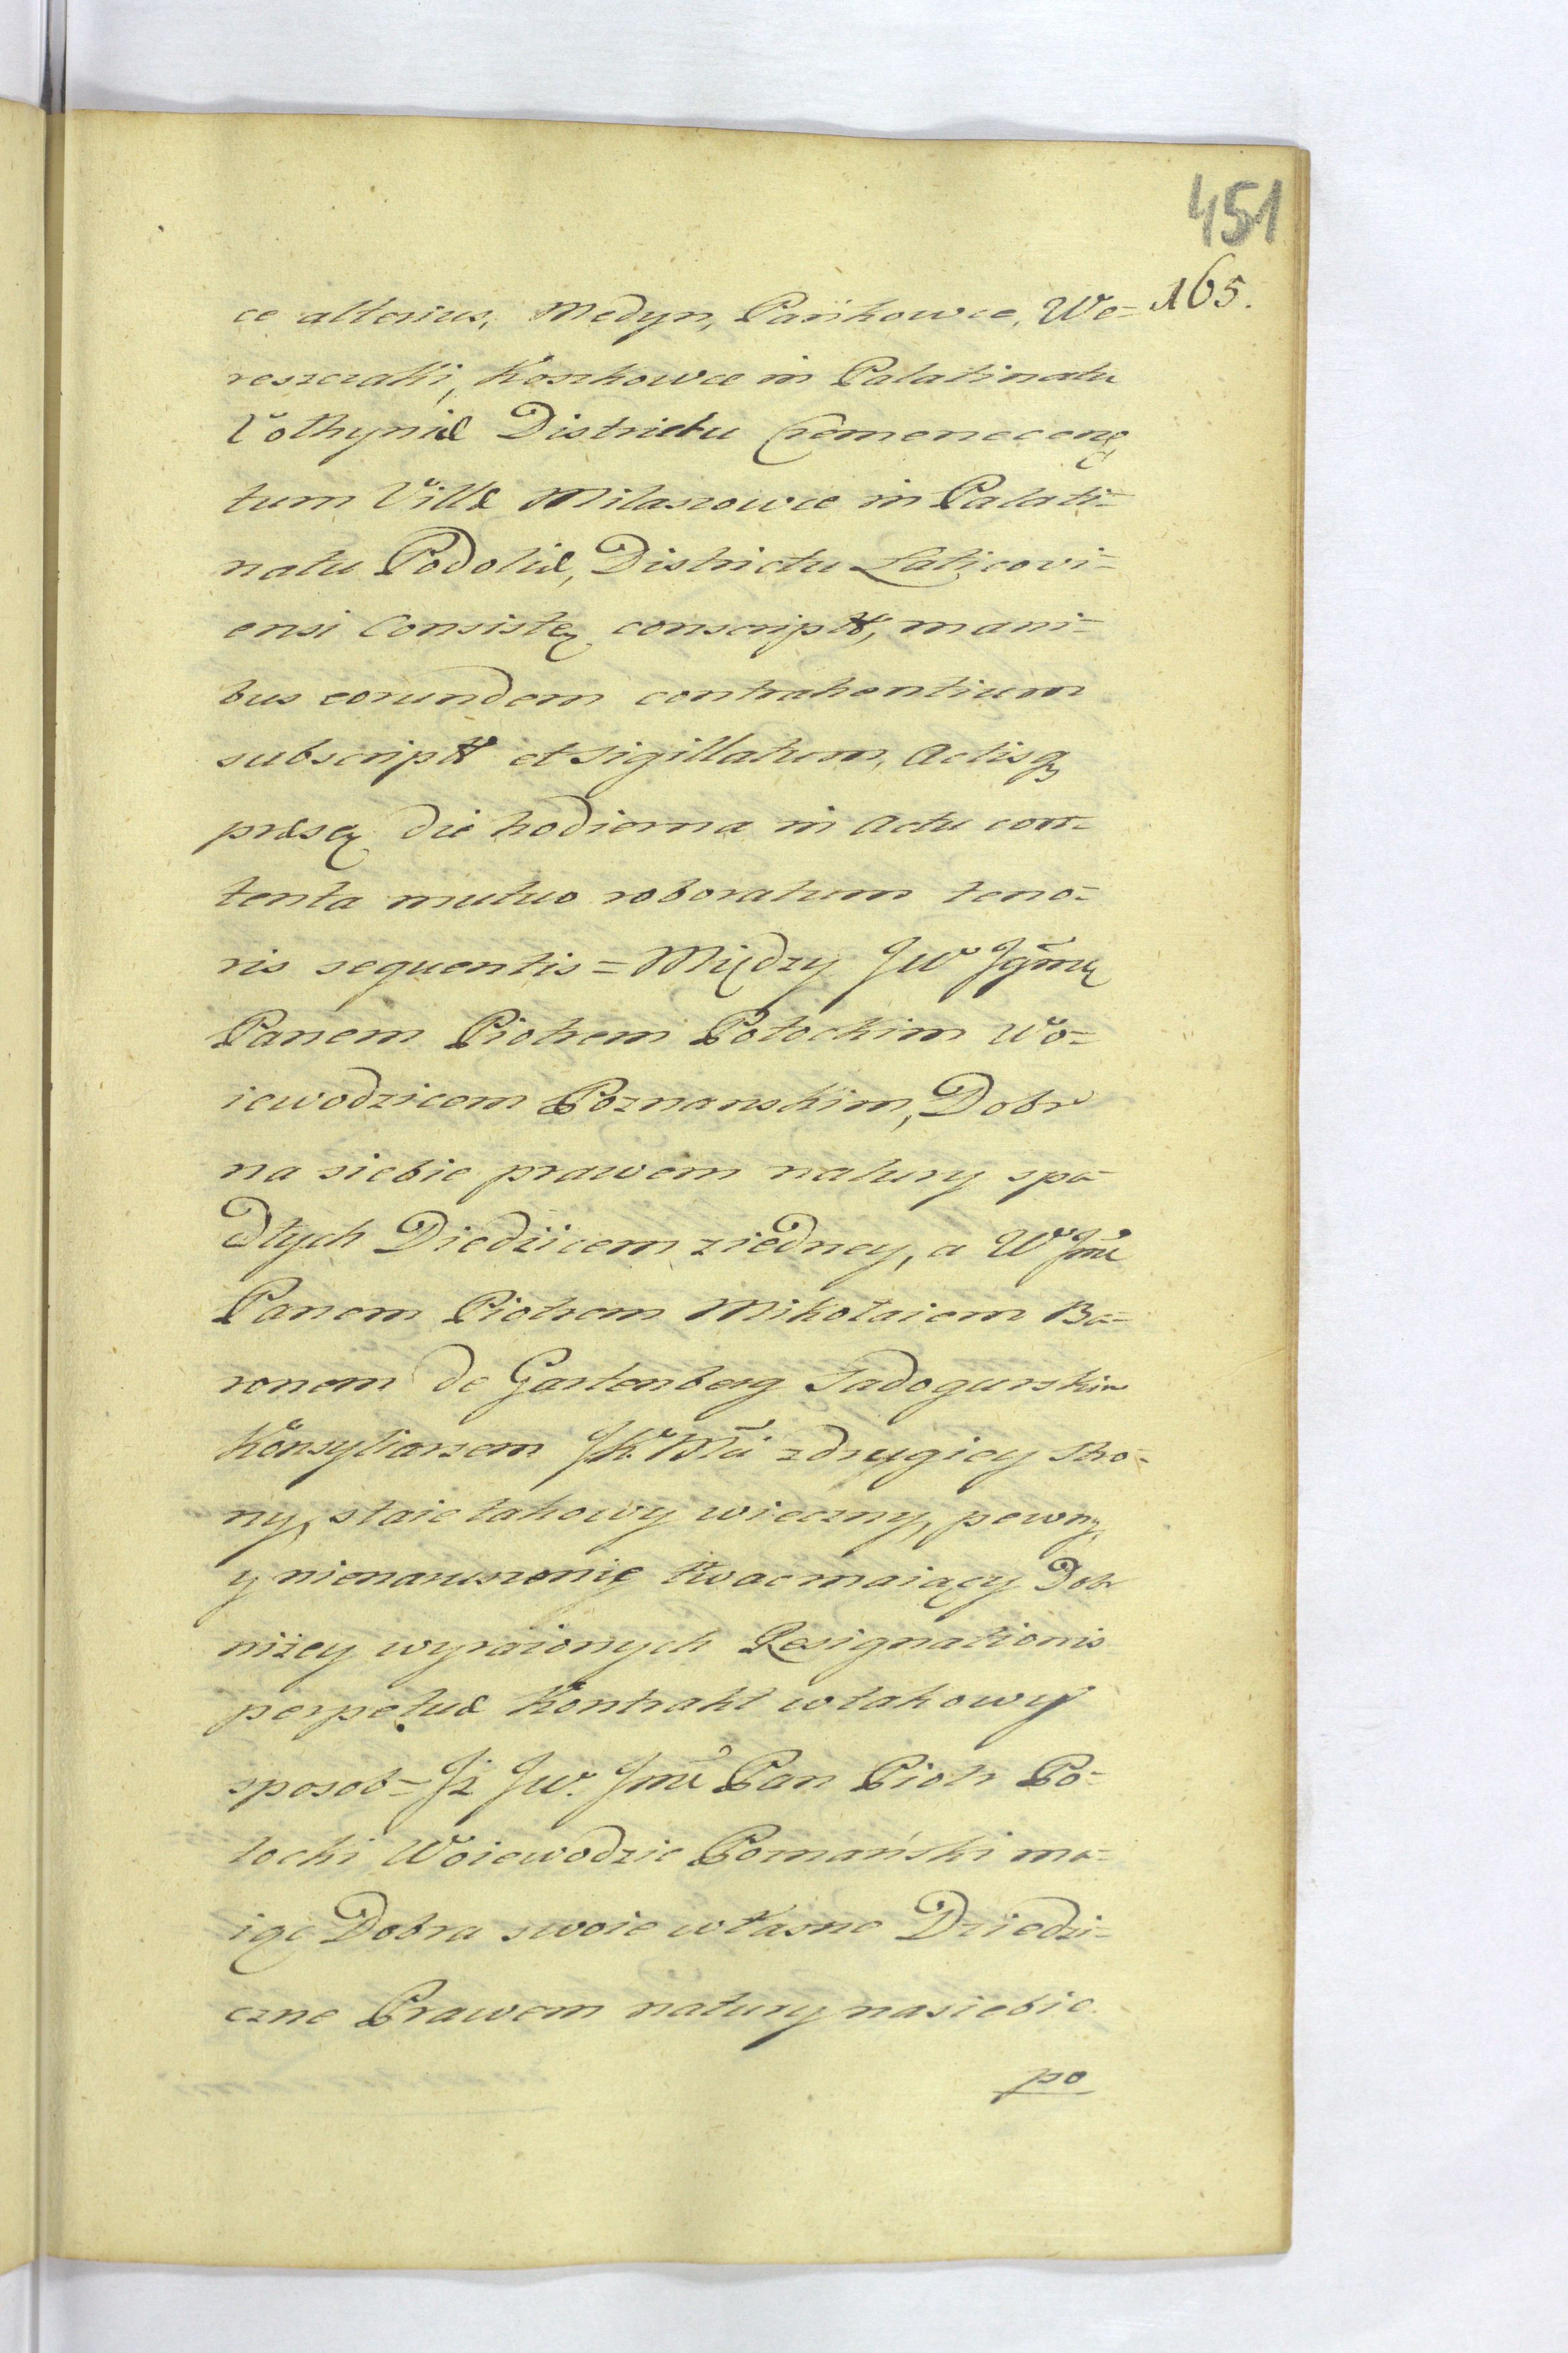 451
165.
ce alterius, Medyn, Pańkowce, We=
reszczaki, Koszkowce in Palatinatu
Volhyniæ Districtu Cremenecenq
tum Villæ Milaszowce in Palati=
natu Podoliæ, Districtu Laticovi=
ensi Consisteq conscriptt, mani=
bus eorundem contrahentium
subscriptt et Sigillatum, Actisq
præseq die hodierna in Actu con=
tenta mutuo roboratum teno=
ris sequentis = Między JW Jgmę
Panem Piotrem Potockim Wo=
iewodzicem Poznanskim, Dobr
na siebie prawem natury spa=
dłych Diedzicem ziedney, a W Jmć
Panem Piotrem Mikołaiem Ba=
ronem de Gartenberg Sadogurskim
Konsyliarzem JK Mći zdrugiey stro=
ny, staie takowy wieczny, pewny,
y nienaruszenie trwac maiący Dobr
niżey wyrażonych Resignationis
perpetuæ Kontrakt wtakowy
sposob = Jż JW. Jmć Pan Piotr Po=
tocki Woiewodzic Poznański ma=
iąc Dobra swoie własne Dziedzi=
czne Prawem natury nasiebie
po